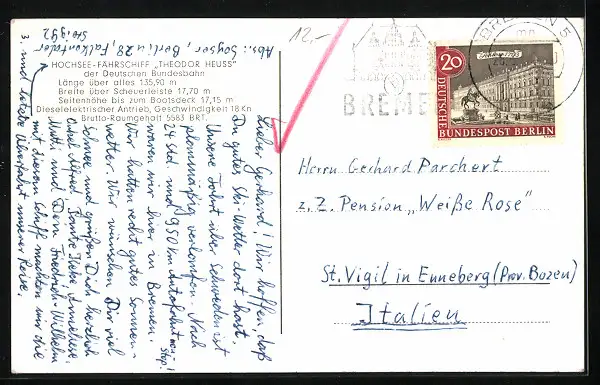 Abs.: Soyser, Berlin 28, Falkentaler
Steig 92
12,-
HOCHSEE-FÄHRSCHIFF „THEODOR HEUSS"
der Deutschen Bundesbahn
Länge über alles 135,90 m
Breite über Scheuerleiste 17,70 m
Seitenhöhe bis zum Bootsdeck 17,15 m
Dieselelektrischer Antrieb, Geschwindigkeit 18 Kn
Brutto-Raumgehalt 5583 BRT.
Lieber Gerhard! Wir hoffen, daß
Du gutes Ski-Wetter dort hast.
Unsere Fahrt über Schweden ist
planmäßig verlaufen. Nach
24 Std. und 950 km Autofahrt
waren wir hier in Bremen.
Wir hatten recht gutes Sonnen-
wetter. Wir wünschen Dir viel
Schnee und grüßen Dich herzlich
Onkel Alfred, Tante Käte,
Mutti und Dein Friedrich-Wilhelm
Mit diesem Schiff machten wir die
3. und letzte Überfahrt unserer Reise.
BREMEN 5
BREME
20
DEUTSCHE
BUNDESPOST BERLIN
Herrn Gerhard Parchert
z. Z. Pension „Weiße Rose"
St. Vigil in Enneberg (Prov. Bozen)
Italien